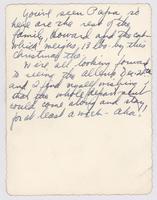 You've seen Papa, so
here are the rest of the
family, Howard and the cat -
which weighs 13 lbs. by this
Christmas time.
We're all looking forward
to seeing the
and I find myself wishing
that the whole department
could come along and stay
for at least a week - aha!